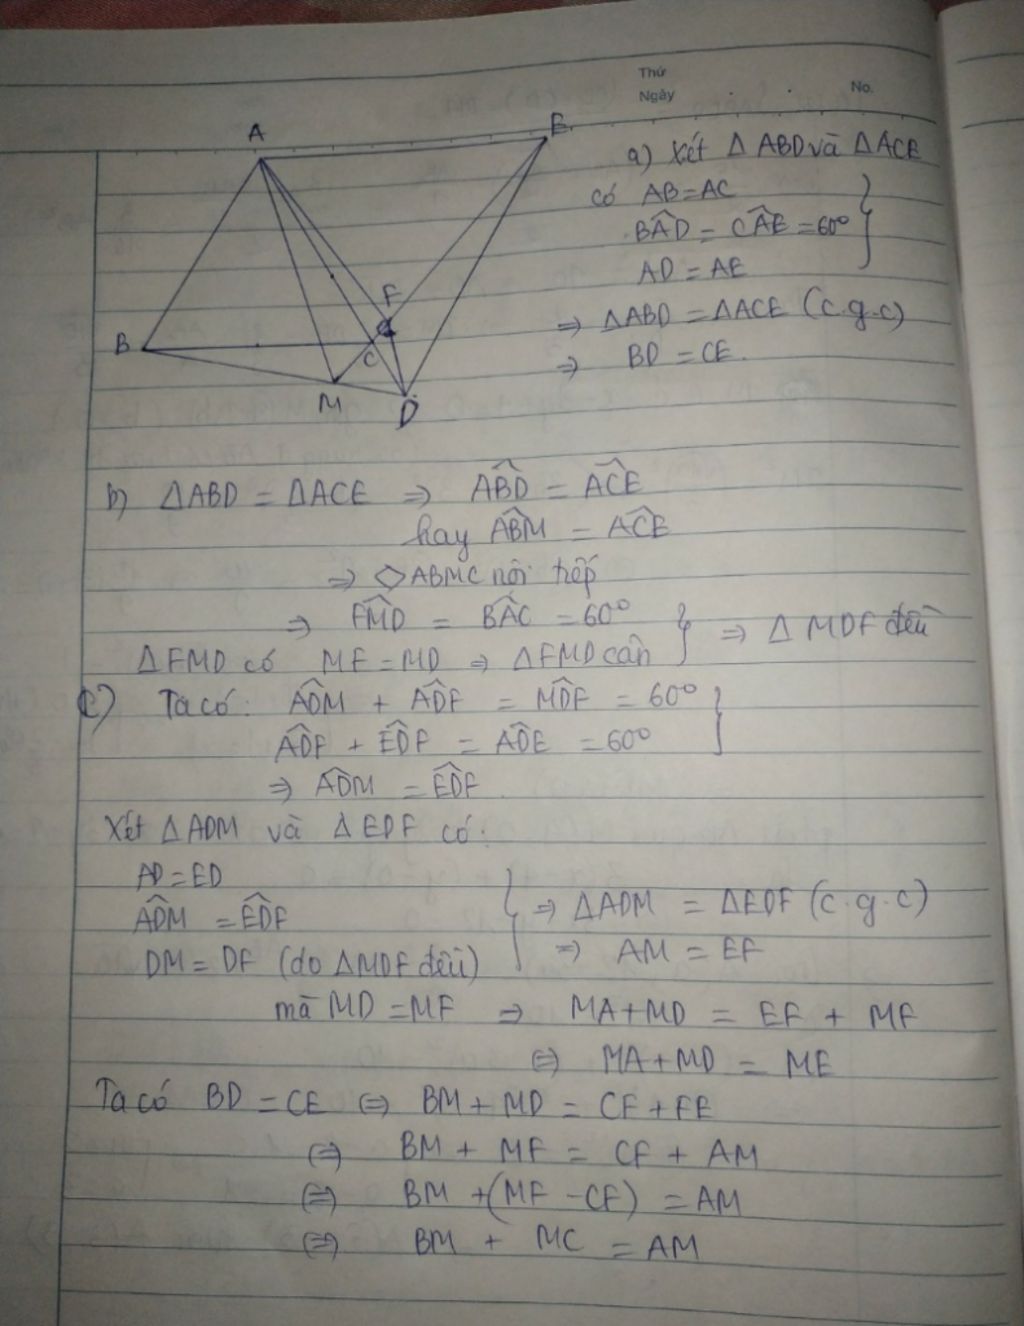 Thứ
Ngày
No.
A
E
B
F
C
M
D
a) Xét Δ ABD và Δ ACE
có AB = AC
BÂD = CÂE = 60°
AD = AE
⇒ ΔABD = ΔACE (c.g.c)
⇒ BD = CE.
b) ΔABD = ΔACE ⇒ AB̂D = AĈE
hay AB̂M = AĈE
⇒ ◇ABMC nội tiếp
⇒ FM̂D = BÂC = 60° } ⇒ Δ MDF đều
ΔFMD có MF = MD ⇒ ΔFMD cân
c) Ta có: AD̂M + AD̂F = MD̂F = 60°
AD̂F + ED̂F = AD̂E = 60°
⇒ AD̂M = ED̂F
Xét ΔADM và ΔEDF có:
AD = ED
AD̂M = ED̂F } ⇒ ΔADM = ΔEDF (c.g.c)
DM = DF (do ΔMDF đều) ⇒ AM = EF
mà MD = MF ⇒ MA + MD = EF + MF
⇔ MA + MD = ME
Ta có BD = CE ⇔ BM + MD = CF + FE
⇔ BM + MF = CF + AM
⇔ BM + (MF - CF) = AM
⇔ BM + MC = AM